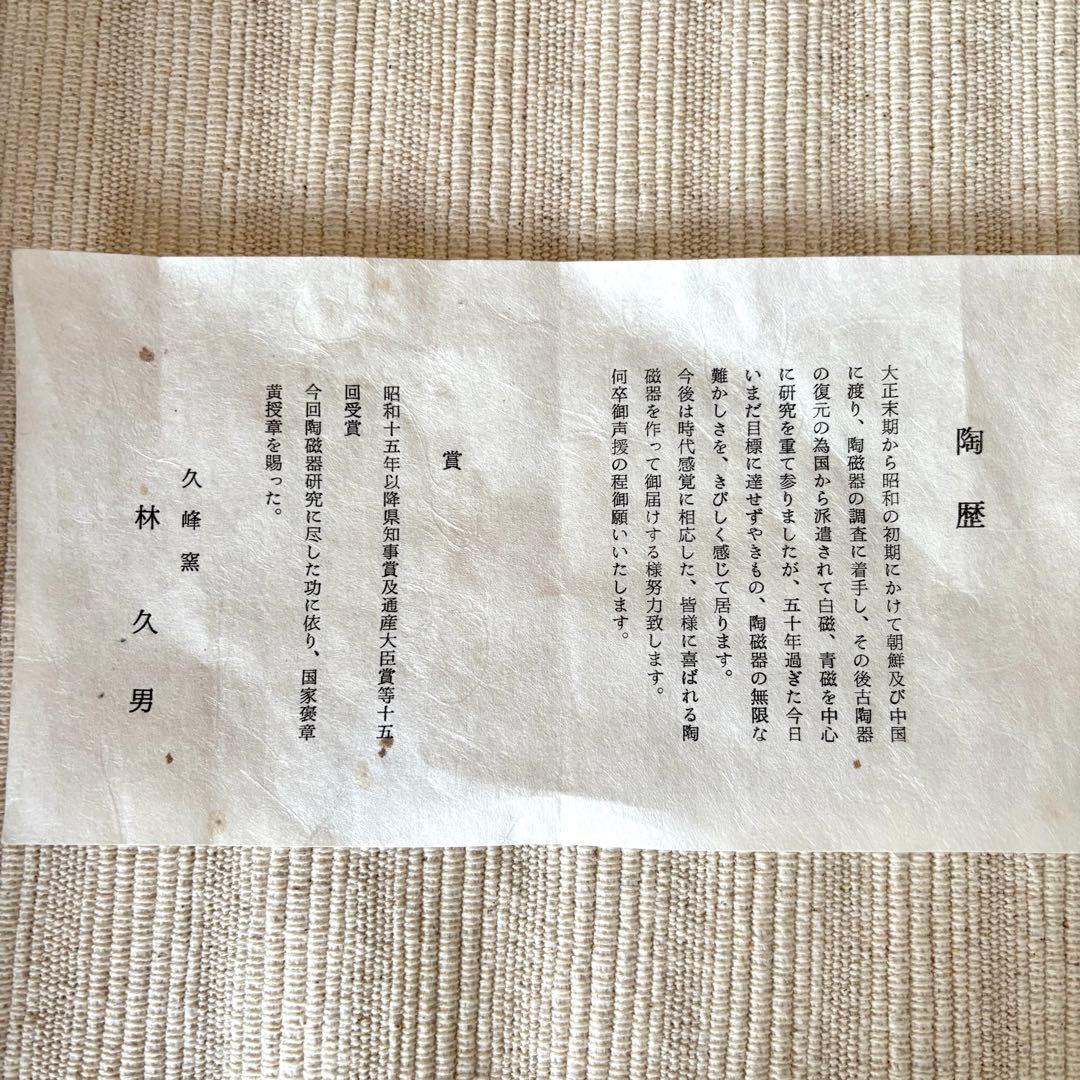 陶歴
大正末期から昭和の初期にかけて朝鮮及び中国
に渡り、陶磁器の調査に着手し、その後古陶器
の復元の為国から派遣されて白磁、青磁を中心
に研究を重て参りましたが、五十年過ぎた今日
いまだ目標に達せずやきもの、陶磁器の無限な
難かしさを、きびしく感じて居ります。
今後は時代感覚に相応した、皆様に喜ばれる陶
磁器を作って御届けする様努力致します。
何卒御声援の程御願いいたします。
賞
昭和十五年以降県知事賞及通産大臣賞等十五
回受賞
今回陶磁器研究に尽した功に依り、国家褒章
黄授章を賜った。
久峰窯
林久男